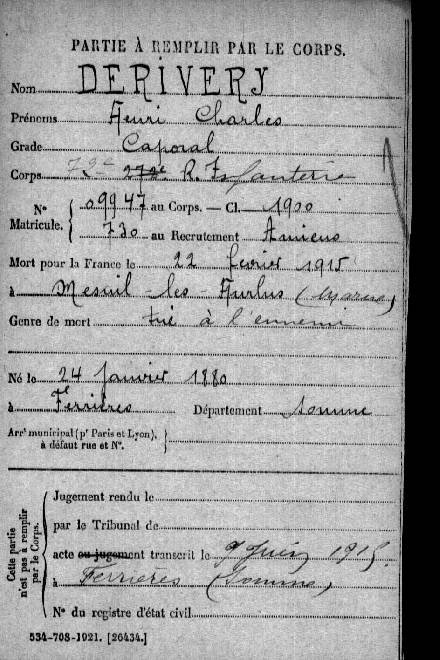 PARTIE À REMPLIR PAR LE CORPS.
Nom DERIVERY
Prénoms Henri Charles
Grade Caporal
Corps 72e 272e R. Infanterie
N° Matricule. { 09947 au Corps. — Cl. 1900
730 au Recrutement Amiens
Mort pour la France le 22 février 1915
à Mesnil-les-Hurlus (Marne)
Genre de mort tué à l'ennemi
Né le 24 Janvier 1880
à Ferrières Département Somme
Arrt municipal (pr Paris et Lyon), à défaut rue et N°.
Cette partie n'est pas à remplir par le Corps.
Jugement rendu le
par le Tribunal de
acte ou jugement transcrit le 9 Juin 1915
à Ferrières (Somme)
N° du registre d'état civil
534-708-1921. [26434.]